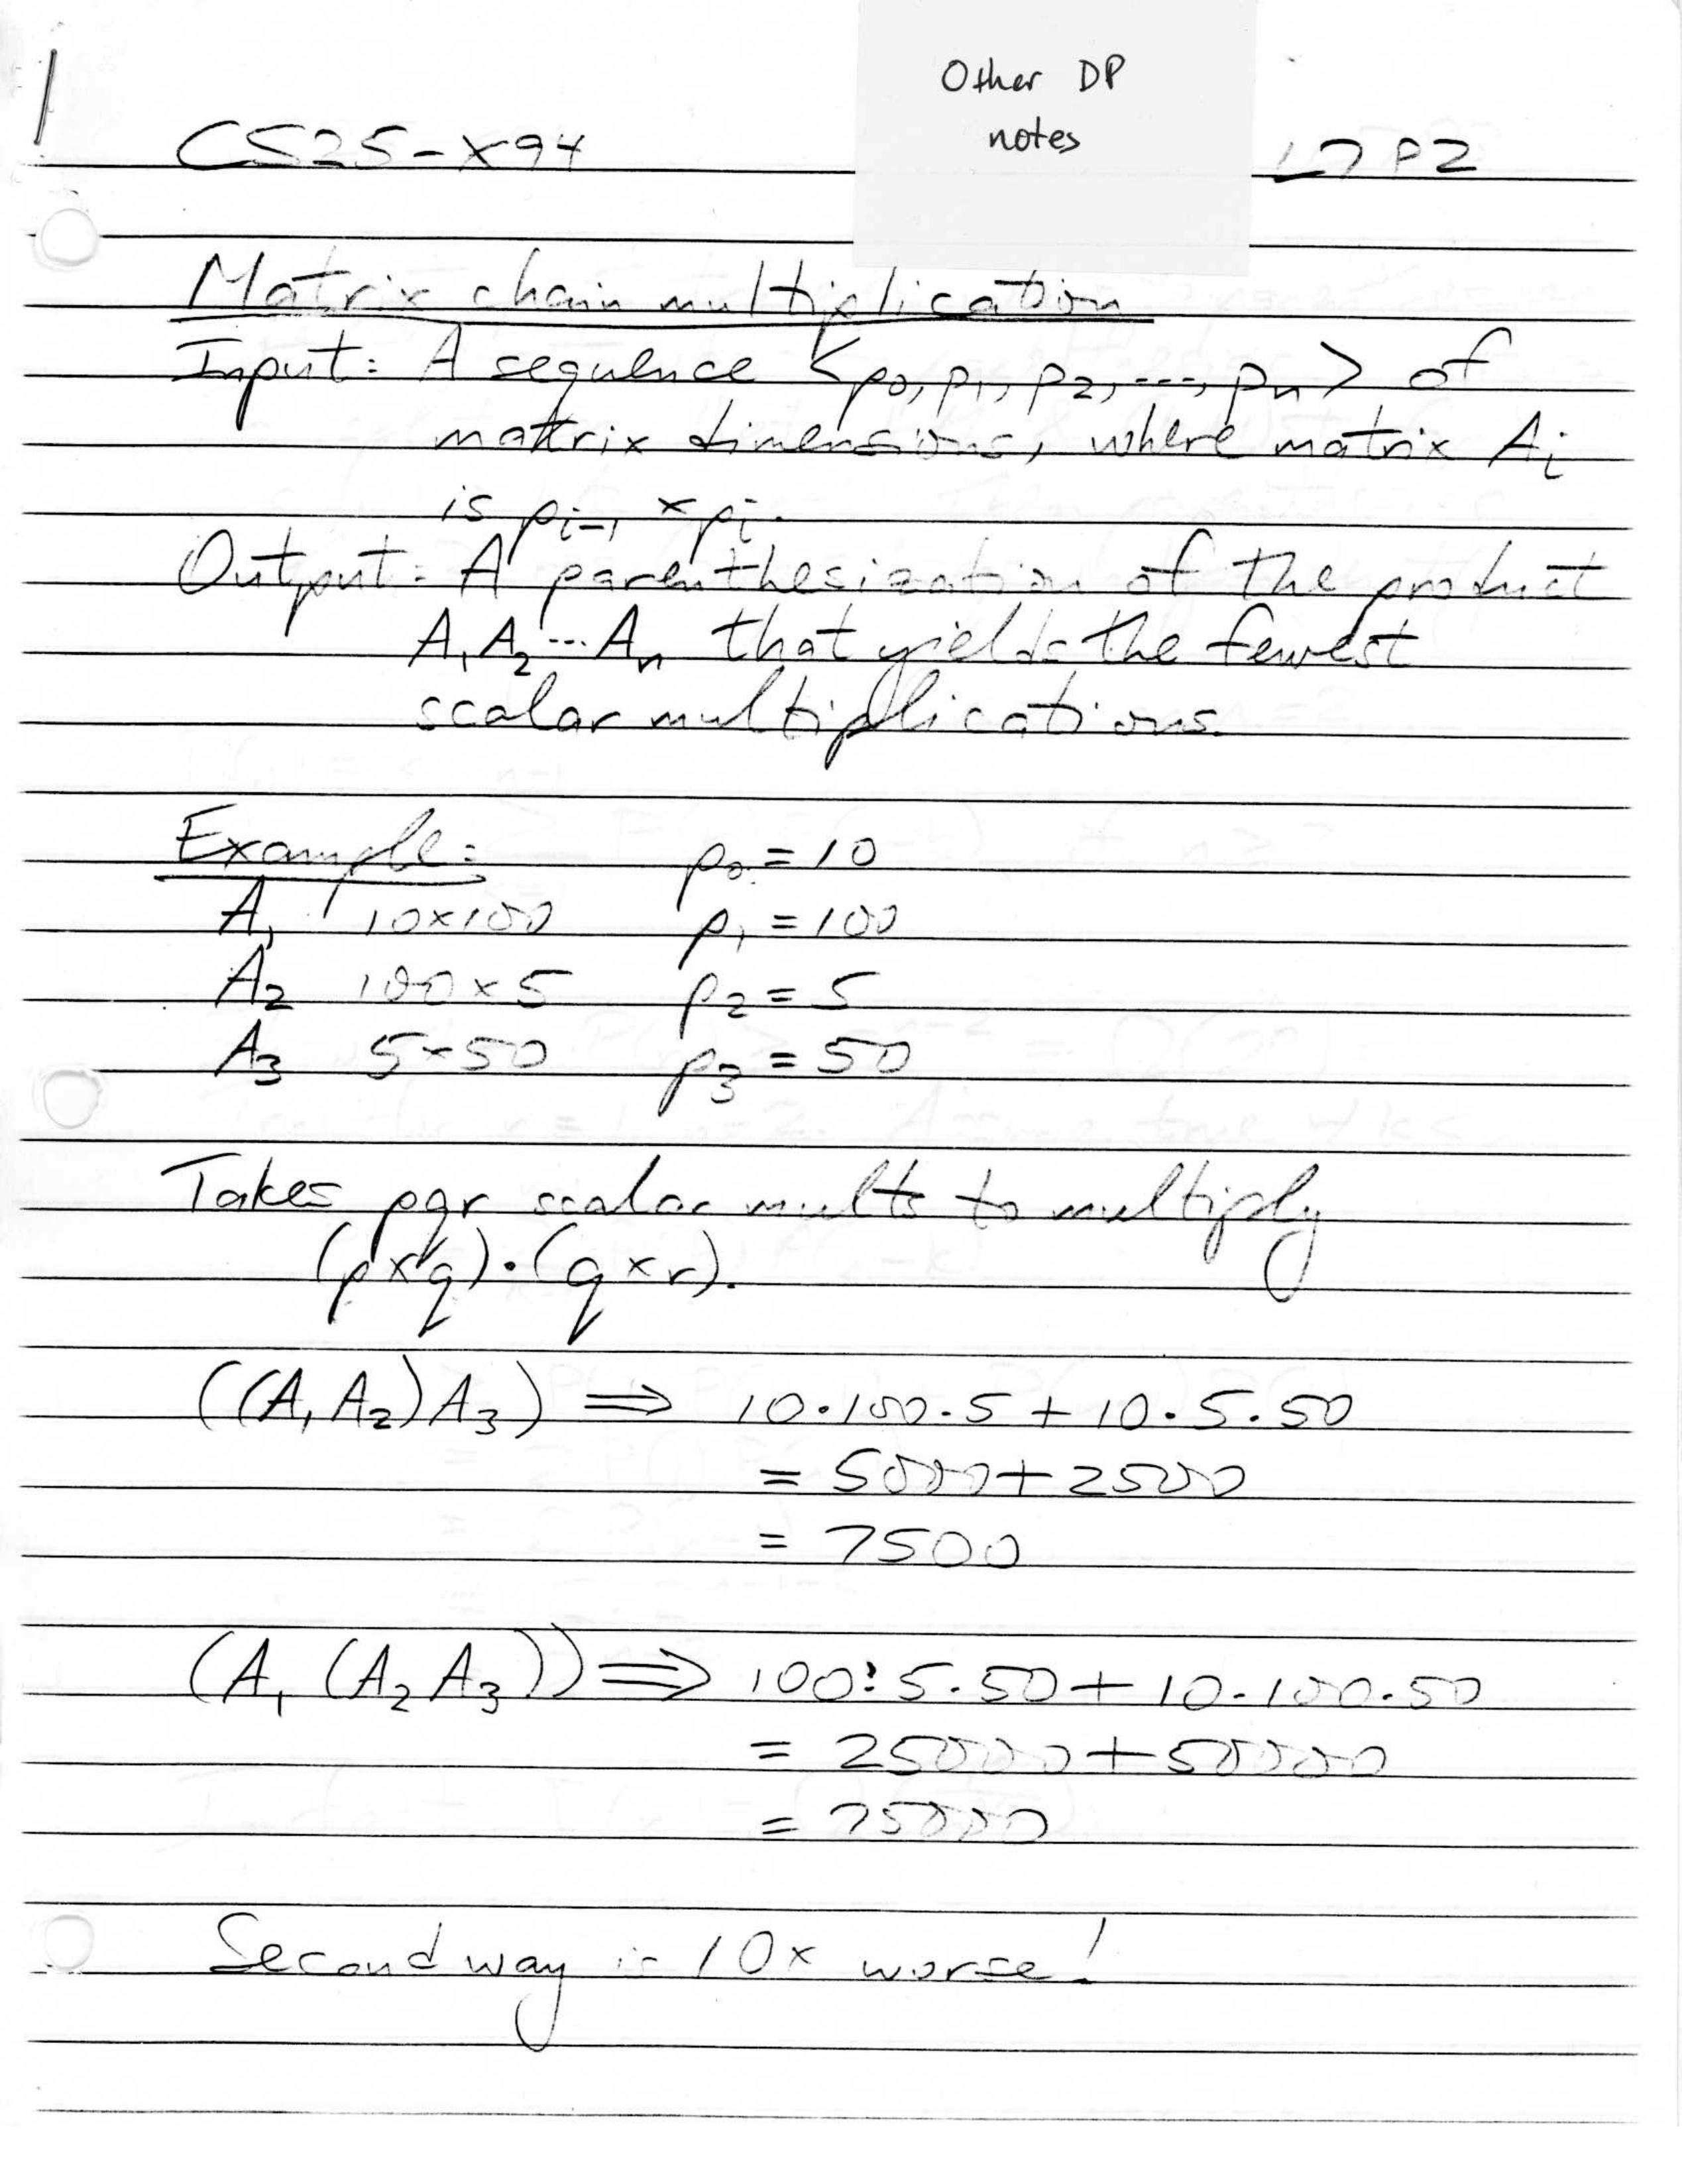 Other DP
notes
CS25-X94
L7 P2
Matrix chain multiplication
Input: A sequence <p₀, p₁, p₂, ..., pₙ> of
matrix dimensions, where matrix Aᵢ
is pᵢ₋₁ × pᵢ.
Output: A parenthesization of the product
A₁A₂...Aₙ that yields the fewest
scalar multiplications.
Example: p₀ = 10
A₁ 10×100 p₁ = 100
A₂ 100×5 p₂ = 5
A₃ 5×50 p₃ = 50
Takes pqr scalar mults to multiply
(p×q)·(q×r).
((A₁A₂)A₃) ⇒ 10·100·5 + 10·5·50
= 5000 + 2500
= 7500
(A₁(A₂A₃)) ⇒ 100·5·50 + 10·100·50
= 25000 + 50000
= 75000
Second way is 10x worse!